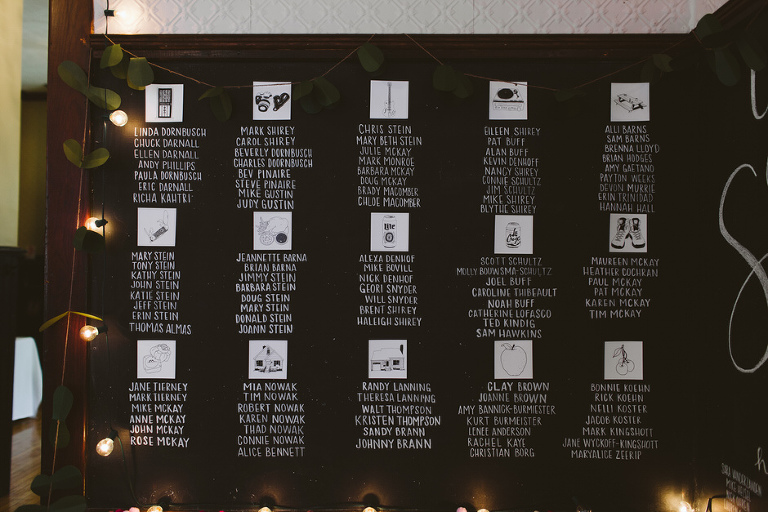 LINDA DORNBUSCH
CHUCK DARNALL
ELLEN DARNALL
ANDY PHILLIPS
PAULA DORNBUSCH
ERIC DARNALL
RICHA KAHTRI
MARK SHIREY
CAROL SHIREY
BEVERLY DORNBUSCH
CHARLES DOORNBUSCH
BEV PINAIRE
STEVE PINAIRE
MIKE GUSTIN
JUDY GUSTIN
CHRIS STEIN
MARY BETH STEIN
JULIE MCKAY
MARK MONROE
BARBARA MCKAY
DOUG MCKAY
BRADY MACOMBER
CHLOE MACOMBER
EILEEN SHIREY
PAT BUFF
ALAN BUFF
KEVIN DENHOFF
NANCY SHIREY
CONNIE SCHULTZ
JIM SCHULTZ
MIKE SHIREY
BLYTHE SHIREY
ALLI BARNS
SAM BARNS
BRENNA LLOYD
BRIAN HODGES
AMY GAETANO
PAYTON WEEKS
DEVON MURRIE
ERIN TRINIDAD
HANNAH HALL
MARY STEIN
TONY STEIN
KATHY STEIN
JOHN STEIN
KATIE STEIN
JEFF STEIN
ERIN STEIN
THOMAS ALMAS
JEANNETTE BARNA
BRIAN BARNA
JIMMY STEIN
BARBARA STEIN
DOUG STEIN
MARY STEIN
DONALD STEIN
JOANN STEIN
Lite
ALEXA DENHOF
MIKE BOVILL
NICK DENHOF
GEORI SNYDER
WILL SNYDER
BRENT SHIREY
HALEIGH SHIREY
SCOTT SCHULTZ
MOLLY BOUWSMA-SCHULTZ
JOEL BUFF
CAROLINE THIBEAULT
NOAH BUFF
CATHERINE LOFASCO
TED KINDIG
SAM HAWKINS
MAUREEN MCKAY
HEATHER COCHRAN
PAUL MCKAY
PAT MCKAY
KAREN MCKAY
TIM MCKAY
JANE TIERNEY
MARK TIERNEY
MIKE MCKAY
ANNE MCKAY
JOHN MCKAY
ROSE MCKAY
MIA NOWAK
TIM NOWAK
ROBERT NOWAK
KAREN NOWAK
THAD NOWAK
CONNIE NOWAK
ALICE BENNETT
RANDY LANNING
THERESA LANNING
WALT THOMPSON
KRISTEN THOMPSON
SANDY BRANN
JOHNNY BRANN
CLAY BROWN
JOANNE BROWN
AMY BANNICK-BURMEISTER
KURT BURMEISTER
LENEE ANDERSON
RACHEL KAYE
CHRISTIAN BORG
BONNIE KOEHN
RICK KOEHN
NELLI KOSTER
JACOB KOSTER
MARK KINGSHOTT
JANE WYCKOFF-KINGSHOTT
MARYALICE ZEERIP